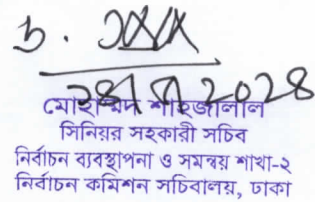 মোহাম্মদ শাহজালাল
সিনিয়র সহকারী সচিব
নির্বাচন ব্যবস্থাপনা ও সমন্বয় শাখা-২
নির্বাচন কমিশন সচিবালয়, ঢাকা